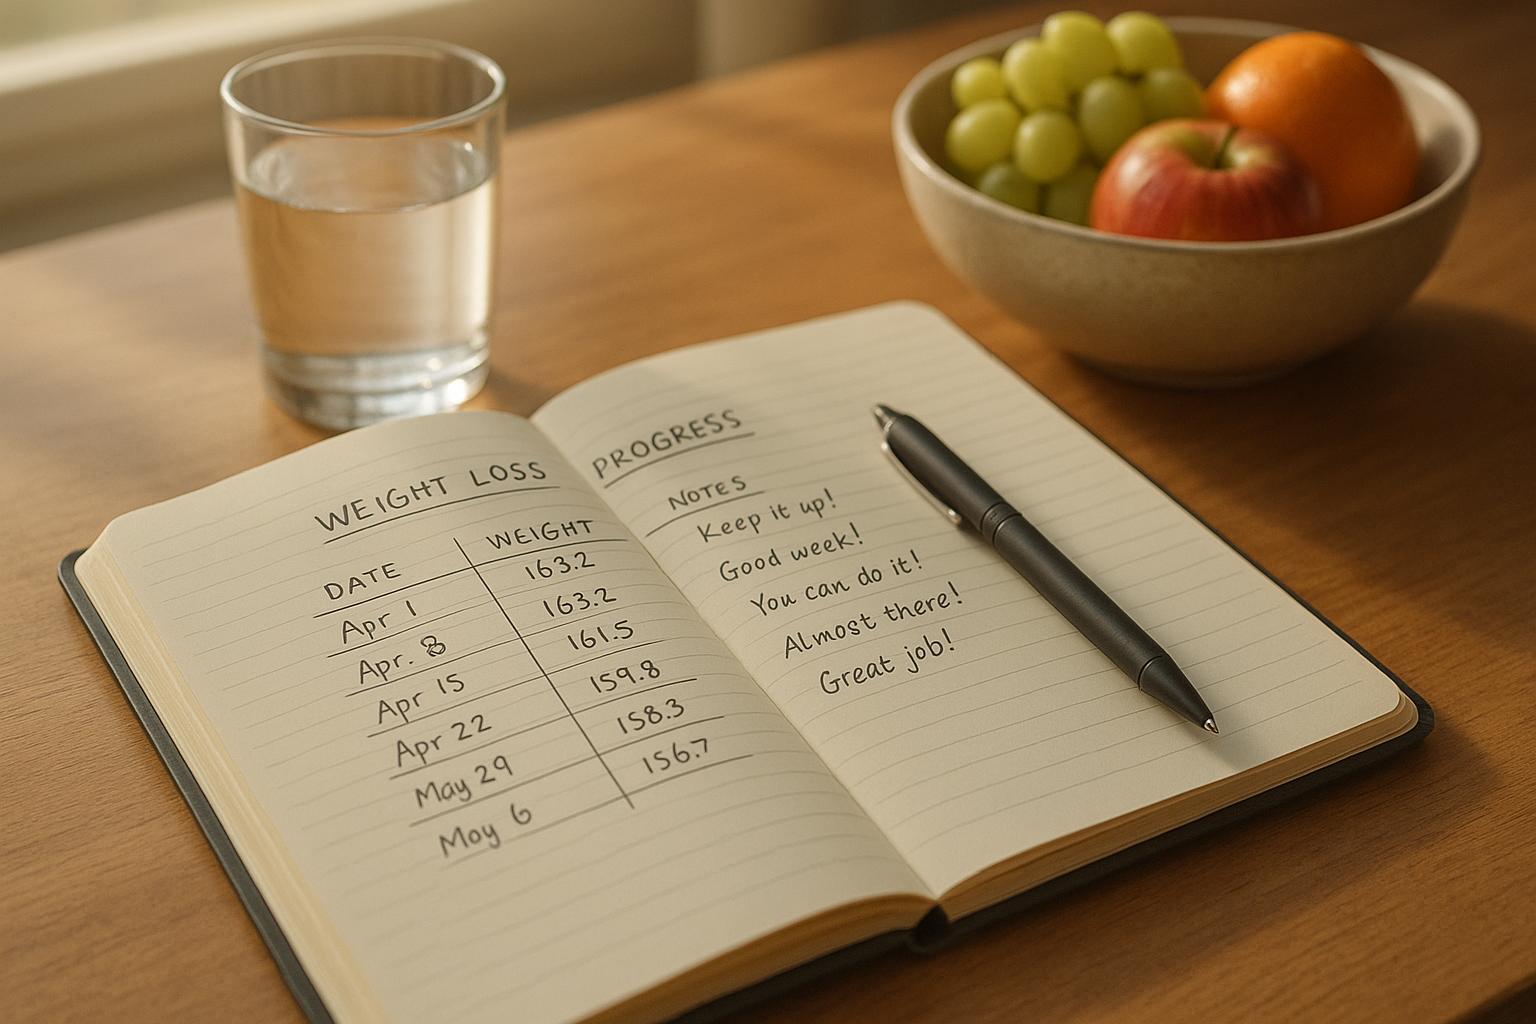 WEIGHT LOSS PROGRESS
DATE WEIGHT NOTES
Apr 1 163.2 Keep it up!
Apr. 8 163.2 Good week!
Apr 15 161.5 You can do it!
Apr 22 159.8 Almost there!
May 29 158.3 Great job!
Moy 6 156.7